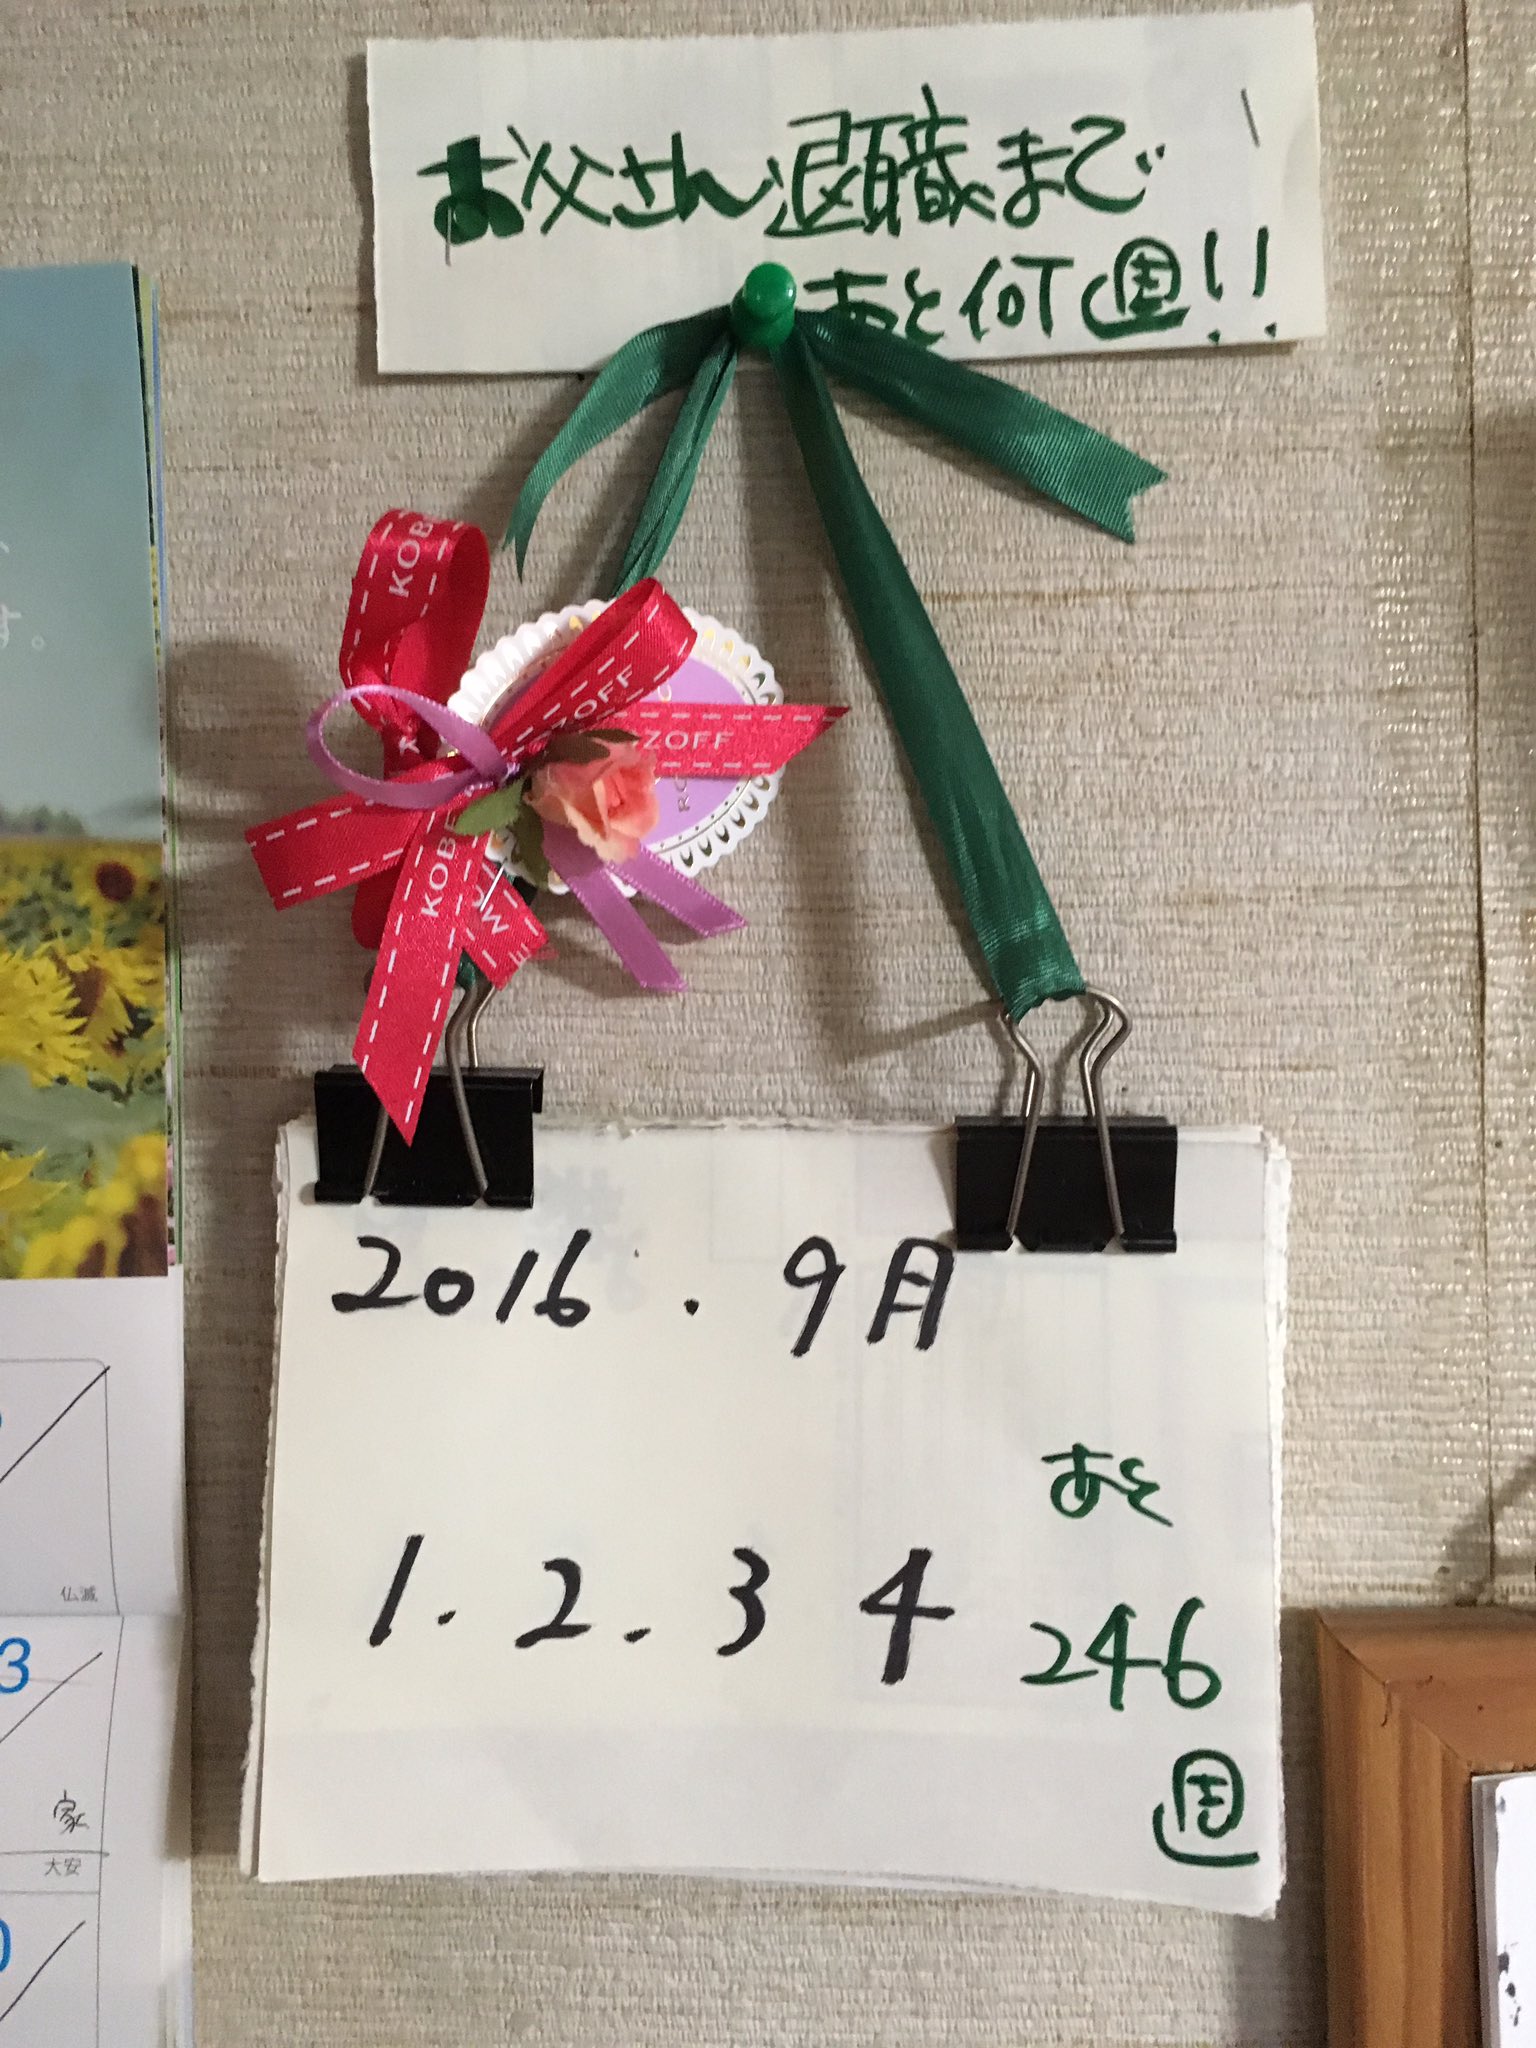 お父さん退職まで
あと何週!!
KOB
ZOFF
ZOFF
KOBE
MO
2016.9月
1.2.3 4
あと
246
週
す。
仏滅
3
家
大安
0